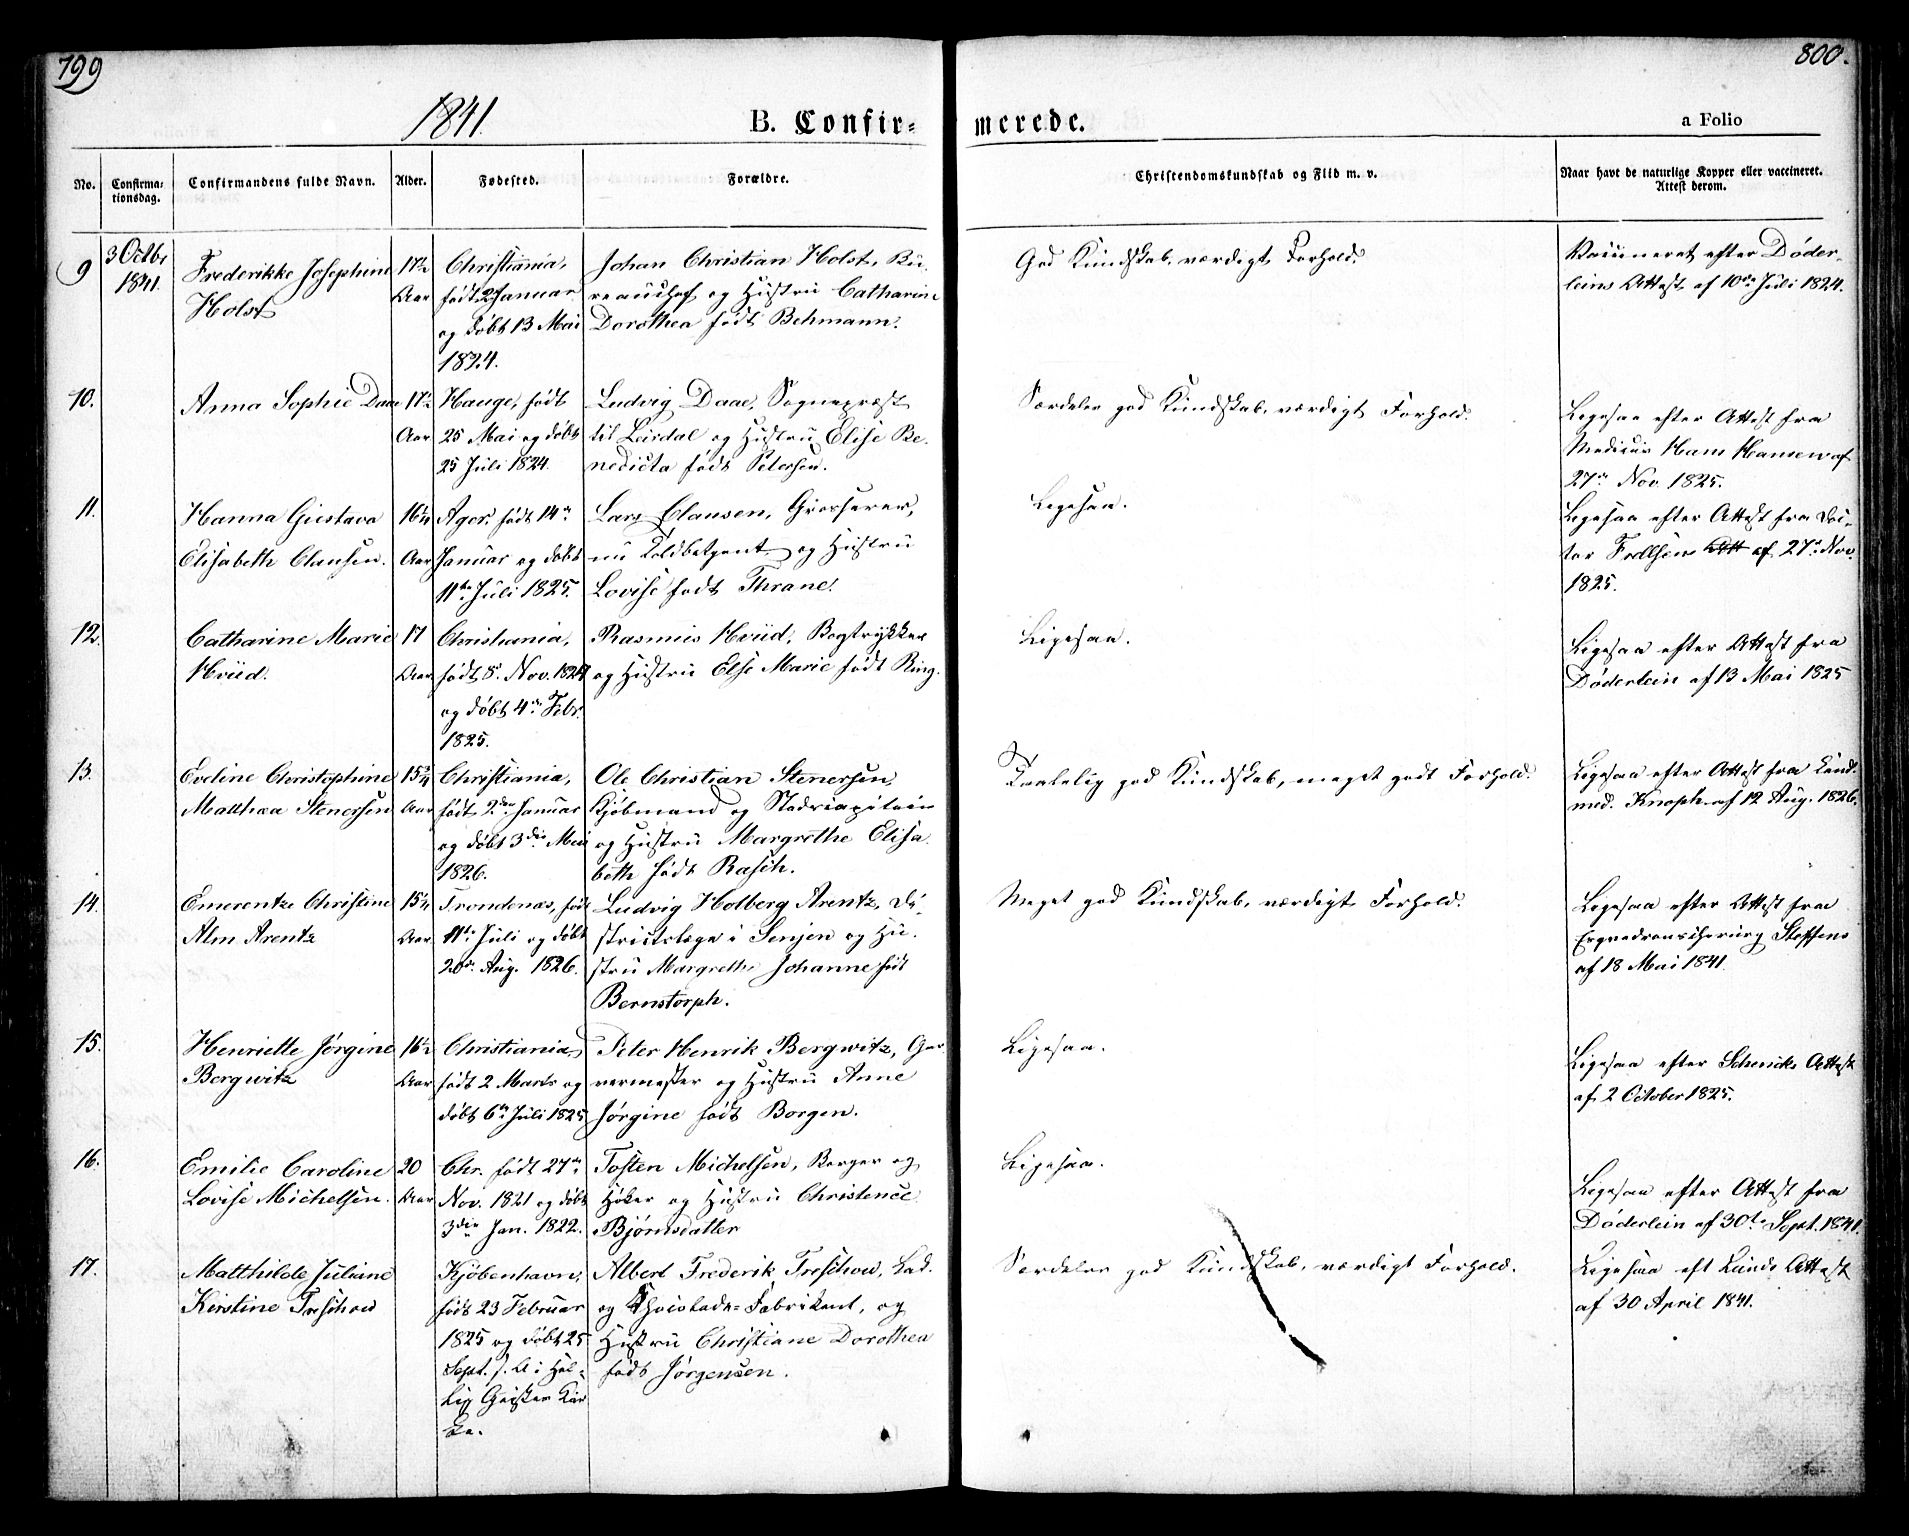 799
800.
1841.
B. Confir=
merede.
a Folio
No.
Confirma=
tionsdag.
Confirmandens fulde Navn.
Alder.
Fødested.
Forældre.
Christendomskundskab og Flid m. v.
Naar havt de naturlige Kopper eller vaccineret.
Attest derom.
9
3 Octbr
1841.
Frederikke Josephine
Holst
17½
Aar
Christiania,
født 2 Januar
og døbt 13 Mai
1824.
Johan Christian Holst, Bü-
reauchef og Hustru Catharine
Dorothea født Behmann.
God Kundskab, værdigt Forhold.
Vaccineret efter Døder-
leins Attest af 10de Juli 1824.
10.
Anna Sophie Daae
17½
Aar
Hauge, født
25 Mai og døbt
25 Juli 1824.
Ludvig Daae, Sognepræst
til Leirdal og Hustru Elise Be-
nedicta født Petersen.
Særdeles god Kundskab, værdigt Forhold.
Ligesaa efter Attest fra
Medicus Hans Hansen af
27de Nov. 1825.
11.
Hanna Gustava
Elisabeth Clausen.
16¾
Aar
Ager, født 14de
Januar og døbt
11te Juli 1825.
Lars Clausen, Grosserer,
nu Toldbetjent og Hustru
Lovise født Thrane.
Ligesaa.
Ligesaa efter Attest fra Doc-
tor Att af 27de Nov.
1825.
12.
Catharine Marie
Hviid.
17
Aar
Christiania,
født 8. Nov. 1824
og døbt 4de Febr.
1825.
Rasmus Hviid, Bogtrykker
og Hustru Else Marie født Ring.
Ligesaa.
Ligesaa efter Attest fra
Døderlein af 13 Mai 1825
13.
Eveline Christophine
Matthea Stenersen
15¾
Aar
Christiania,
født 2den Januar
og døbt 3die Mai
1826.
Ole Christian Stenersen,
Kjøbmand og Stadscapitain
og Hustru Margrethe Elisa-
beth født Rasch.
Taalelig god Kundskab, meget godt Forhold.
Ligesaa efter Attest fra Cand.
med. Knoph af 12 Aug. 1826.
14.
Emerentze Christine
Alm Arentz
15¼
Aar
Trondenæs, født
11te Juli og døbt
20de Aug. 1826.
Ludvig Holberg Arentz, Di-
strictslæge i Senjen og Hu-
stru Margrethe Johanne født
Bernstorph.
Meget god Kundskab, værdigt Forhold.
Ligesaa efter Attest fra
Esqvadronschirurg Steffens
af 18 Mai 1841.
15.
Henriette Jørgine
Bergwitz
16½
Aar
Christiania,
født 2 Marts og
døbt 6te Juli 1825
Peter Henrik Bergwitz, Gar-
vermester og Hustru Anne
Jørgine født Borgen.
Ligesaa.
Ligesaa efter Schencks Attest
af 2 October 1825.
16.
Emilie Caroline
Lovise Michelsen.
20
Aar
Chr. født 27de
Nov. 1821 og døbt
3die Jan. 1822.
Tosten Michelsen, Borger og
Høker og Hustru Christence
Bjørnsdatter
Ligesaa.
Ligesaa efter Attest fra
Døderlein af 30te Sept. 1841.
17.
Matthilde Juliane
Kirstine Treschow
Kjøbenhavn,
født 23 Februar
1825 og døbt 25
Sept. s. A. i Hel-
lig Geistes Kir
ke.
Albert Frederik Treschow,
og Chocolade-Fabrikant, og
Hustru Christiane Dorothea
født Jørgensen.
Særdeles god Kundskab, værdigt Forhold.
Ligesaa eft Lunds Attest
af 30 April 1841.